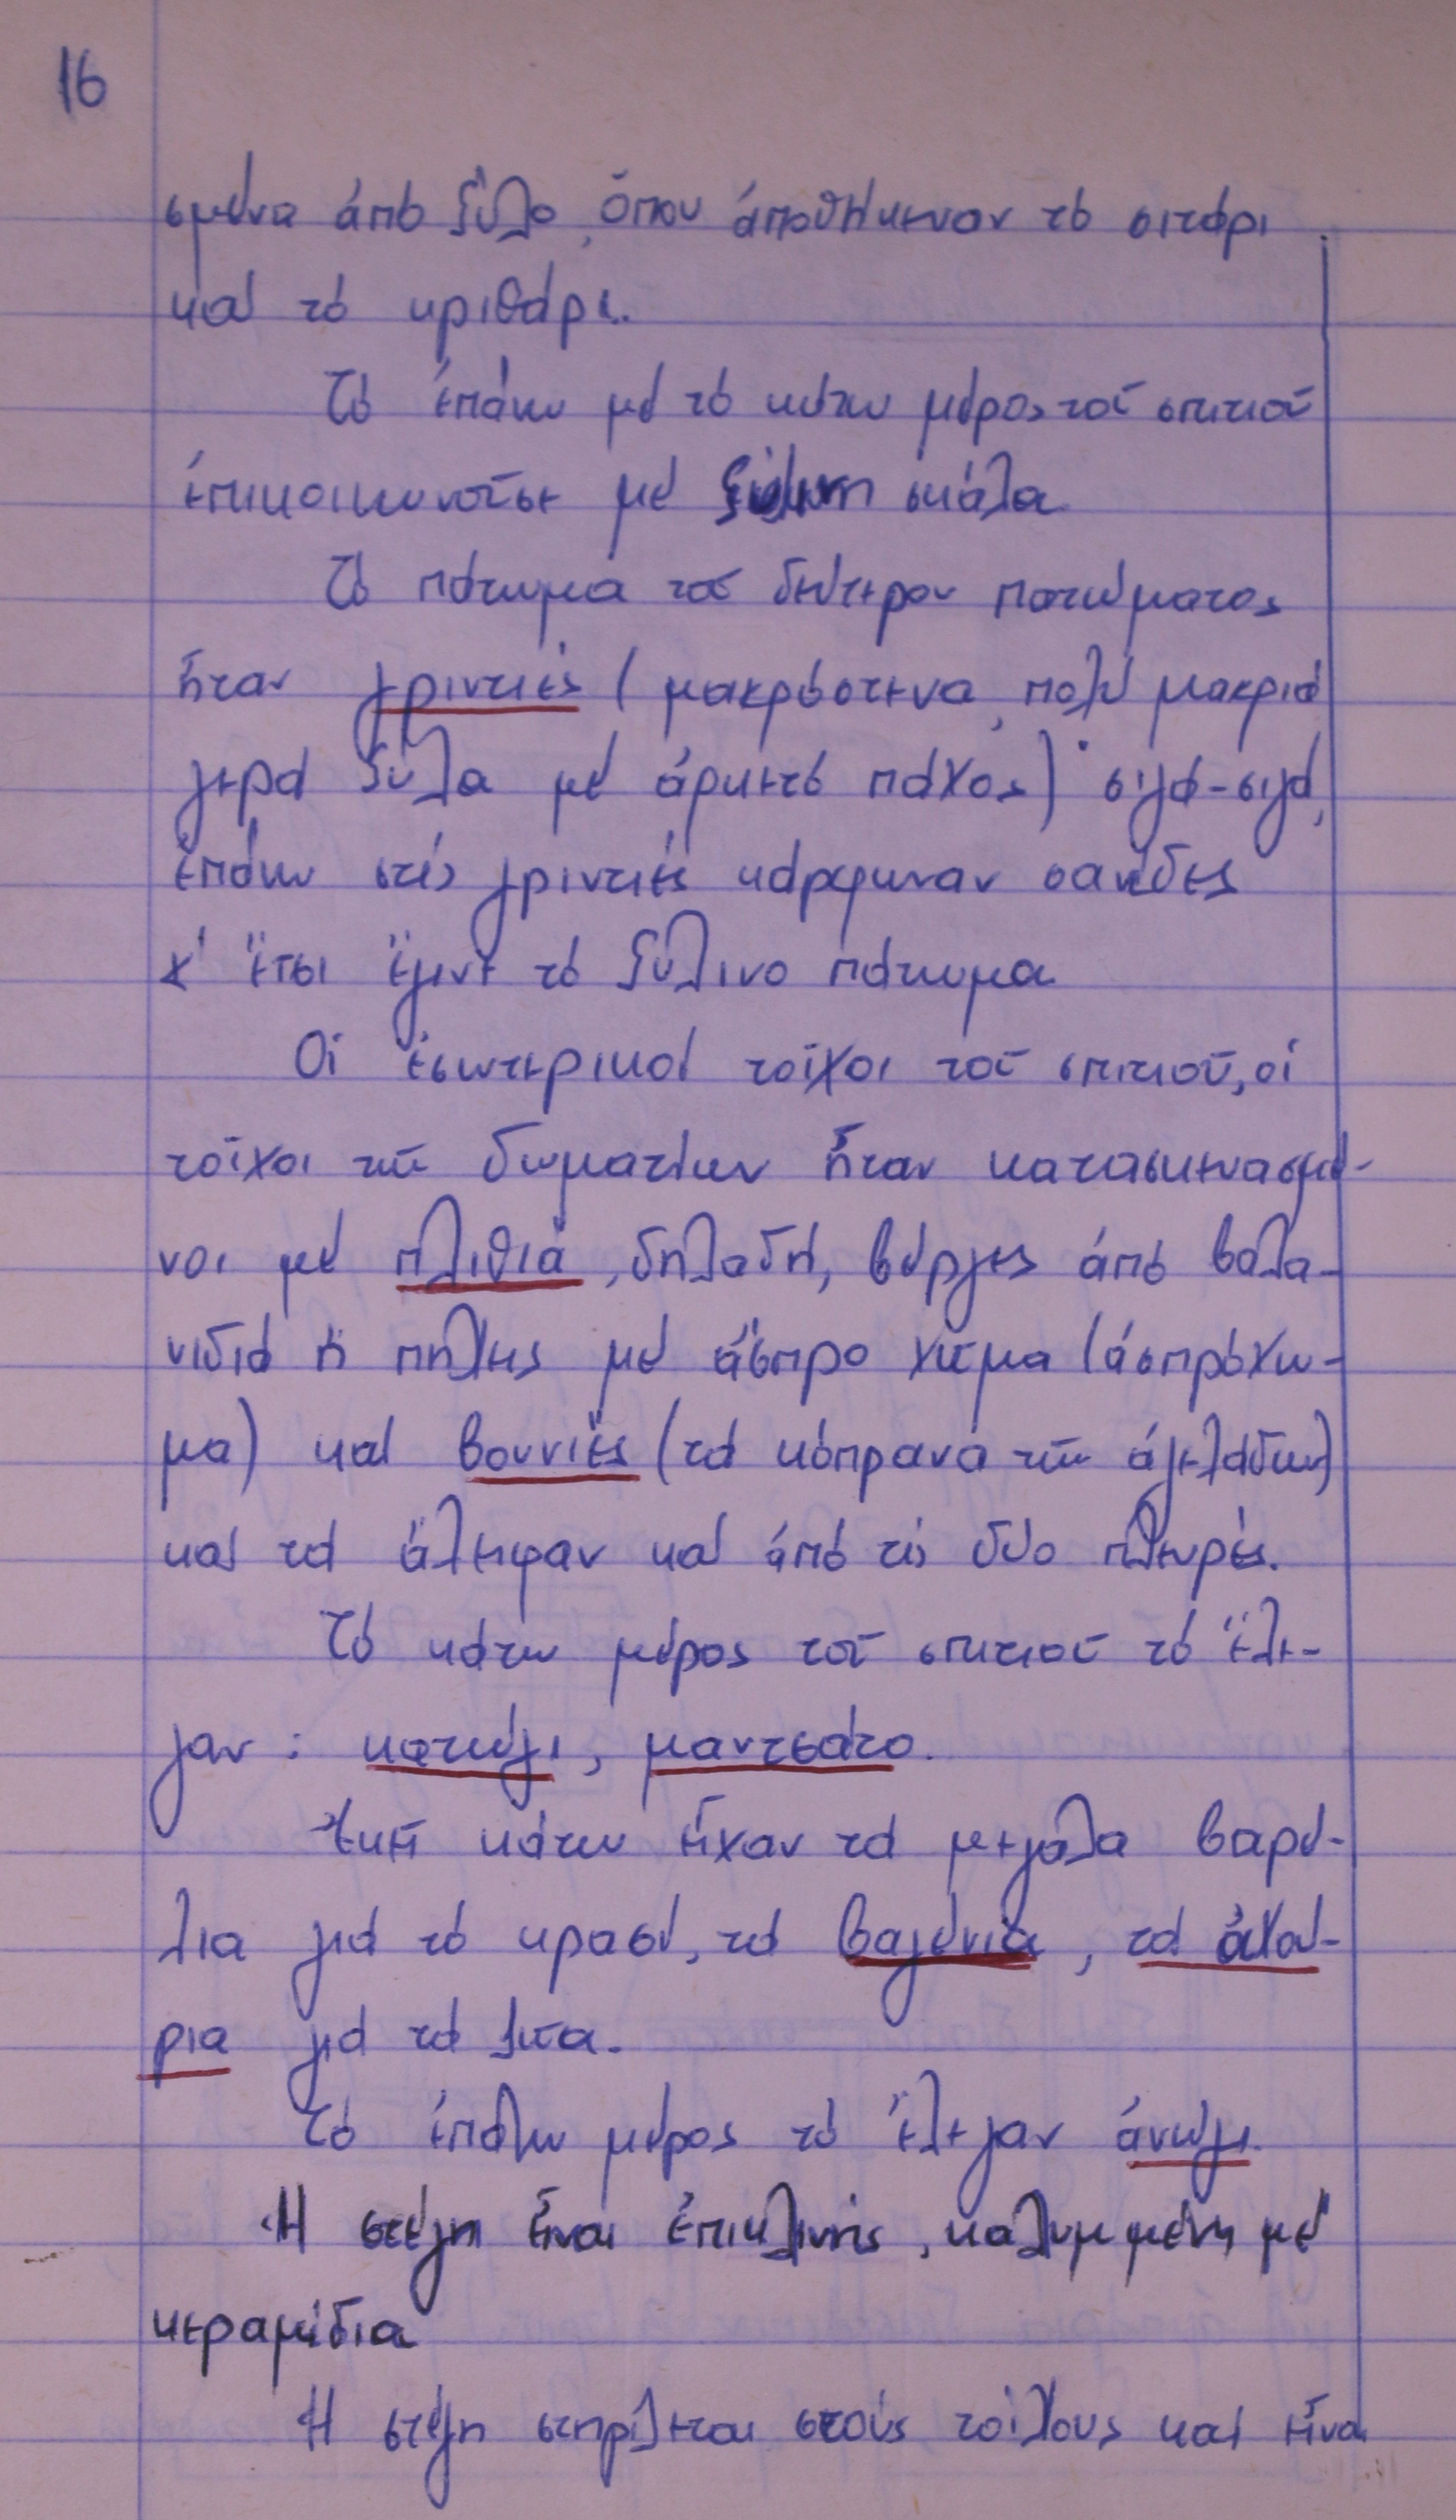 16
σμένα ἀπό ξύλο, ὅπου ἀποθήκευαν τό σιτάρι
καί τό κριθάρι.
Τό ἐπάνω μέ τό κάτω μέρος τοῦ σπιτιοῦ
ἐπικοινωνοῦσε μέ ξύλινη σκάλα
Τό πάτωμα τοῦ δεύτερου πατώματος
ἦταν γριντιές (μακρόστενα, πολύ μακριά
γερά ξύλα μέ ἀρκετό πάχος)· σιγά-σιγά,
ἐπάνω στίς γριντιές κάρφωναν σανίδες
κ' ἔτσι ἔγινε τό ξύλινο πάτωμα
Οἱ ἐσωτερικοί τοῖχοι τοῦ σπιτιοῦ, οἱ
τοῖχοι τῶν δωματίων ἦταν κατασκευασμέ-
νοι μέ πλιθιά, δηλαδή, βέργες ἀπό βαλα-
νιδιά ἤ πηλός μέ ἄσπρο χῶμα (ἀσπρόχω-
μα) καί βουνιές (τά κόπρανα τῶν ἀγελάδων)
καί τά ἄλειφαν καί ἀπό τίς δύο πλευρές.
Τό κάτω μέρος τοῦ σπιτιοῦ τό ἔλε-
γαν: κατώγι, μαντσάτο.
Ἐκεῖ κάτω εἶχαν τά μεγάλα βαρέ-
λια γιά τό κρασί, τά βαγένια, τά ἀχού-
ρια γιά τά ζῶα.
Τό ἐπάνω μέρος τό ἔλεγαν ἀνώγι.
Ἡ στέγη εἶναι ἐπικλινής, καλυμμένη μέ
κεραμίδια
Ἡ στέγη στηρίζεται στούς τοίχους καί εἶναι